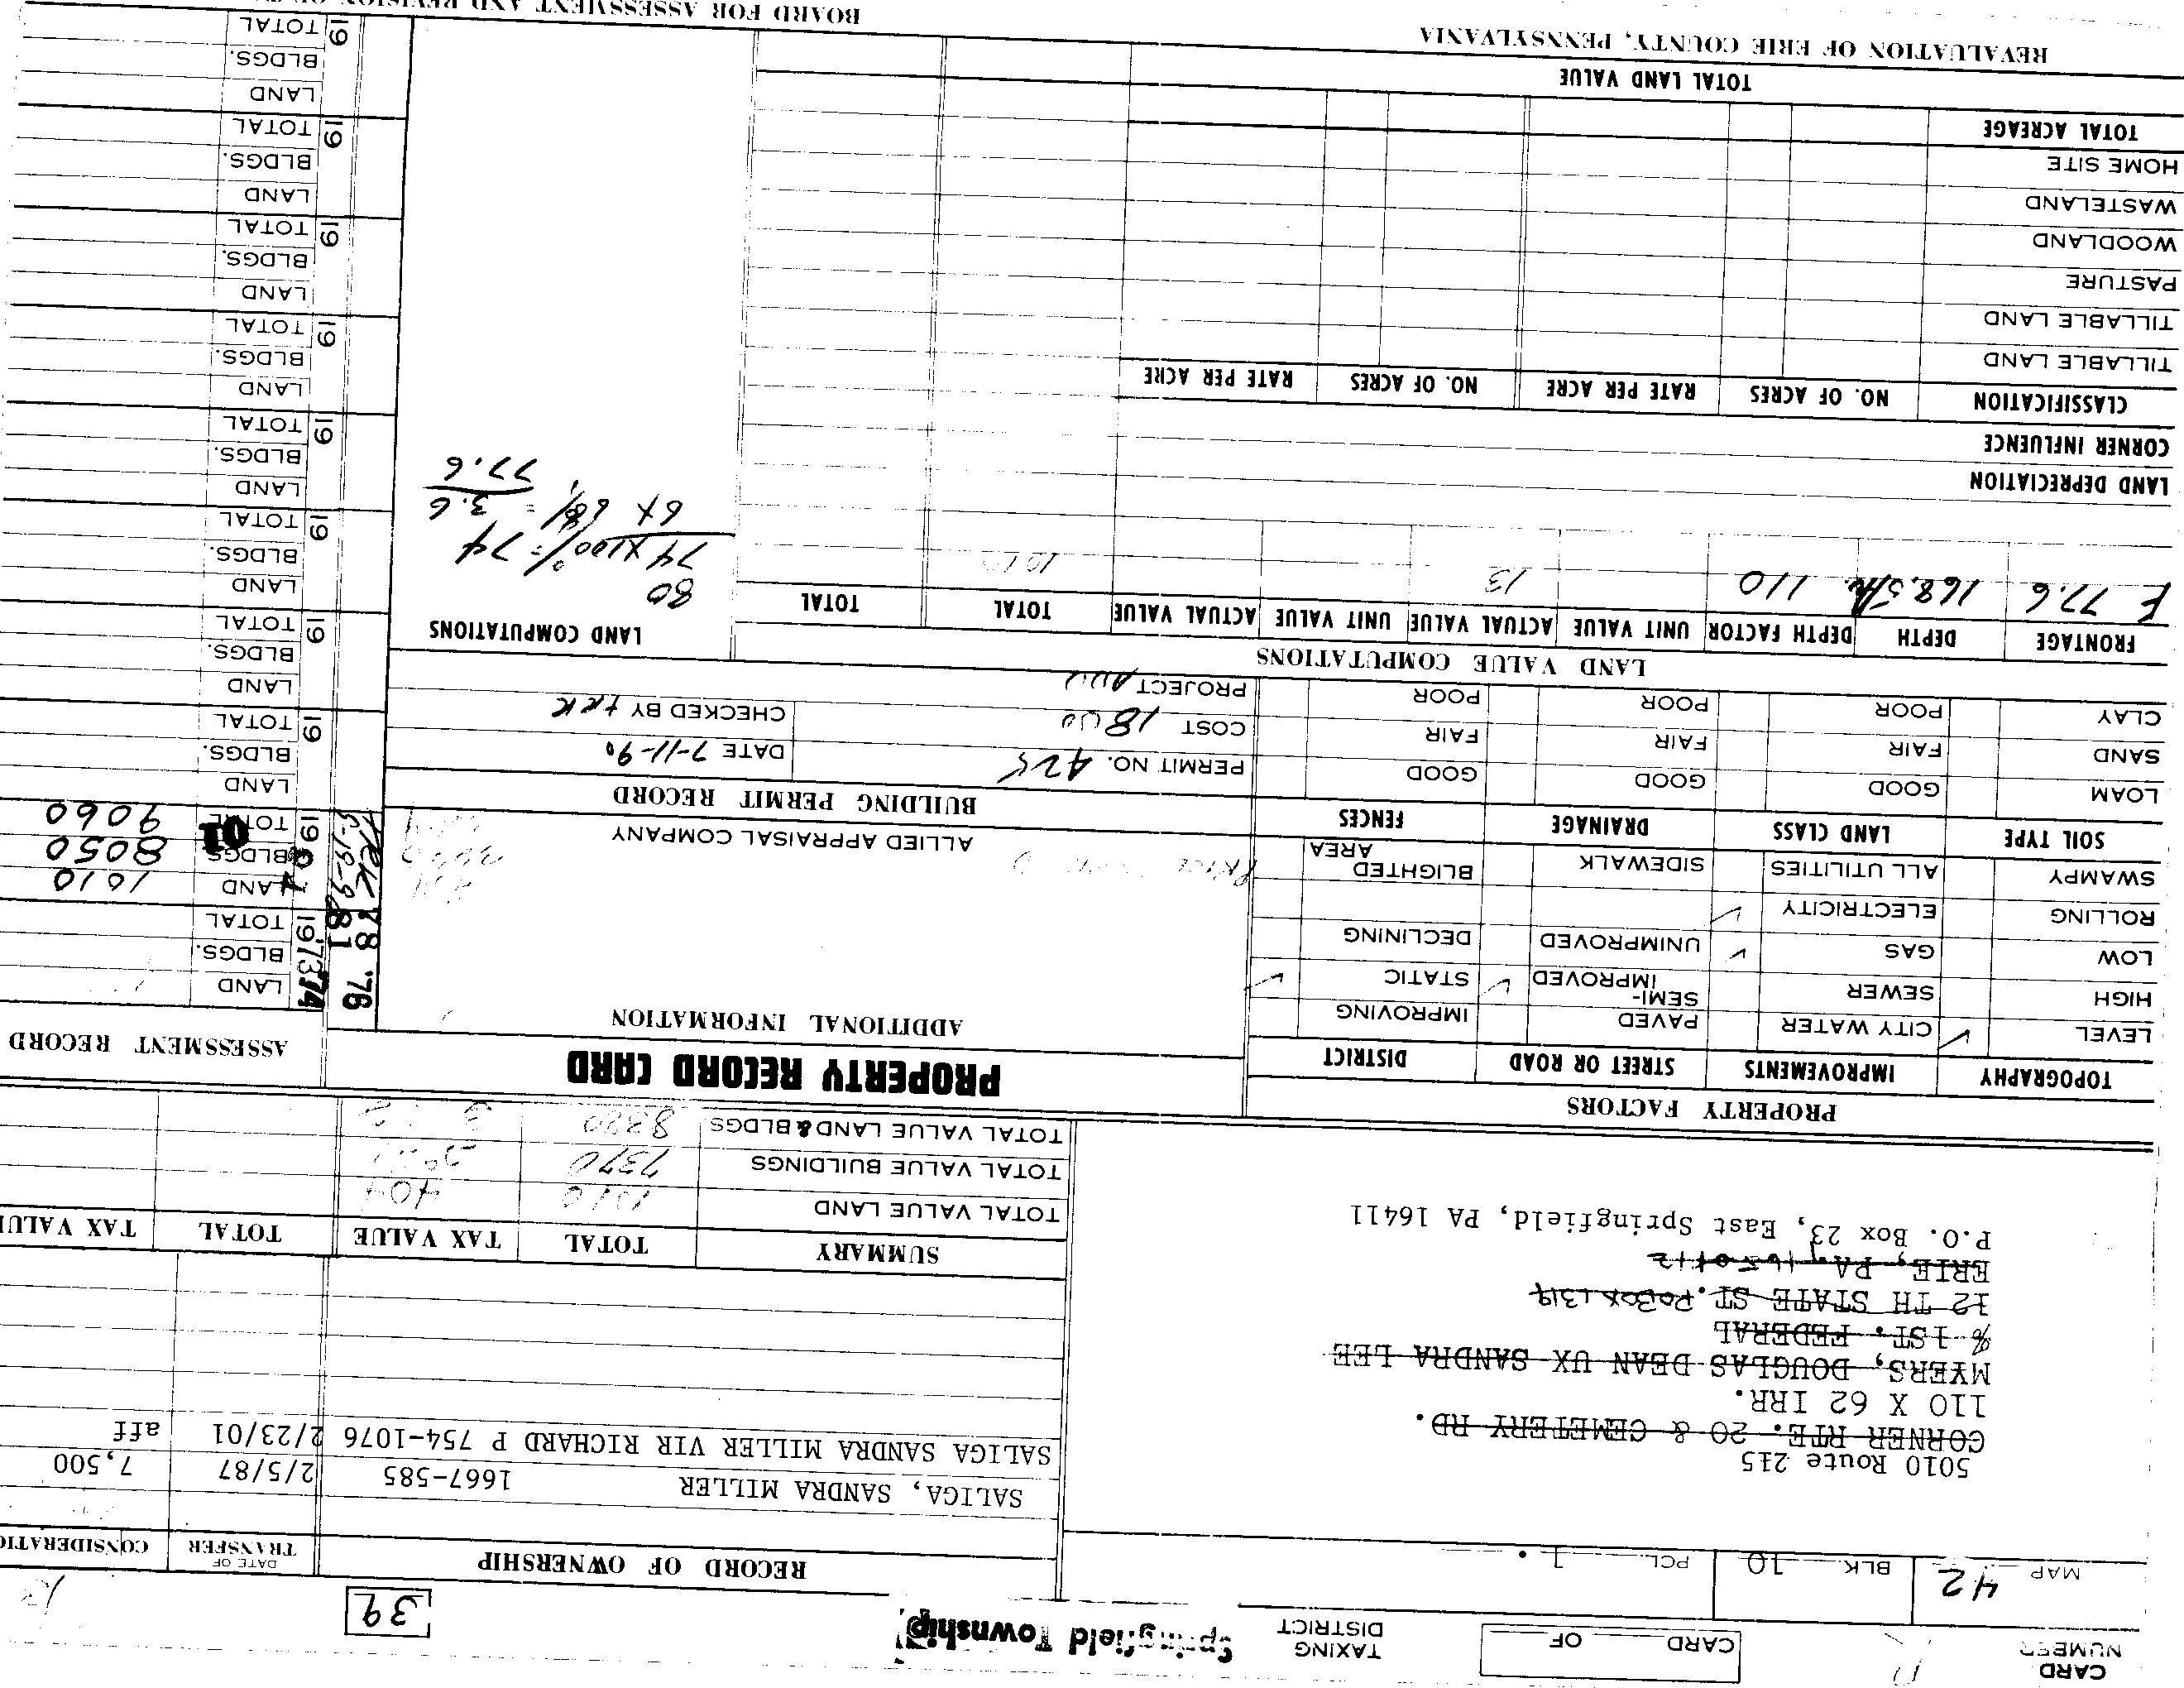 CARD NUMBER
CARD OF
TAXING DISTRICT
Springfield Township
39
MAP 42
BLK 10
PCL 1.
RECORD OF OWNERSHIP
DATE OF TRANSFER
CONSIDERATIO
5010 Route 215
CORNER RTE. 20 & CEMETERY RD.
110 X 62 IRR.
MYERS, DOUGLAS DEAN UX SANDRA LEE
% 1ST. FEDERAL
12 TH STATE ST. PO BOX 1319
ERIE, PA
P.O. Box 23, East Springfield, PA 16411
SALIGA, SANDRA MILLER 1667-585 2/5/87 7,500
SALIGA SANDRA MILLER VIR RICHARD P 754-1076 2/23/01 aff
SUMMARY TOTAL TAX VALUE TOTAL TAX VALUE
TOTAL VALUE LAND 1010 404
TOTAL VALUE BUILDINGS 7370
TOTAL VALUE LAND & BLDGS 8380
PROPERTY FACTORS
TOPOGRAPHY IMPROVEMENTS STREET OR ROAD DISTRICT
LEVEL ✓ CITY WATER PAVED IMPROVING
HIGH SEWER SEMI-IMPROVED ✓ STATIC ✓
LOW GAS ✓ UNIMPROVED DECLINING
ROLLING ELECTRICITY ✓
SWAMPY ALL UTILITIES SIDEWALK BLIGHTED AREA
SOIL TYPE LAND CLASS DRAINAGE FENCES
LOAM GOOD GOOD GOOD
SAND FAIR FAIR FAIR
CLAY POOR POOR POOR
PROPERTY RECORD CARD
ADDITIONAL INFORMATION
ALLIED APPRAISAL COMPANY
BUILDING PERMIT RECORD
PERMIT NO. 425 DATE 7-11-90
COST 1800 CHECKED BY
PROJECT
ASSESSMENT RECORD
1973 74
LAND
BLDGS.
TOTAL
78 '76
81
19
01
LAND 1010
BLDGS. 8050
TOTAL 9060
LAND
BLDGS.
19 TOTAL
LAND
BLDGS.
19 TOTAL
LAND
BLDGS.
19 TOTAL
LAND
BLDGS.
19 TOTAL
LAND
BLDGS.
19 TOTAL
LAND
BLDGS.
19 TOTAL
LAND
BLDGS.
19 TOTAL
LAND
BLDGS.
19 TOTAL
LAND VALUE COMPUTATIONS
FRONTAGE DEPTH DEPTH FACTOR UNIT VALUE ACTUAL VALUE UNIT VALUE ACTUAL VALUE TOTAL TOTAL
F 77.6 168.5 110 13 1010
LAND COMPUTATIONS
80
74 X 100% = 74
6 X 60% = 3.6
77.6
LAND DEPRECIATION
CORNER INFLUENCE
CLASSIFICATION NO. OF ACRES RATE PER ACRE NO. OF ACRES RATE PER ACRE
TILLABLE LAND
TILLABLE LAND
PASTURE
WOODLAND
WASTELAND
HOME SITE
TOTAL ACREAGE
TOTAL LAND VALUE
REVALUATION OF ERIE COUNTY, PENNSYLVANIA
BOARD FOR ASSESSMENT AND REVISION OF